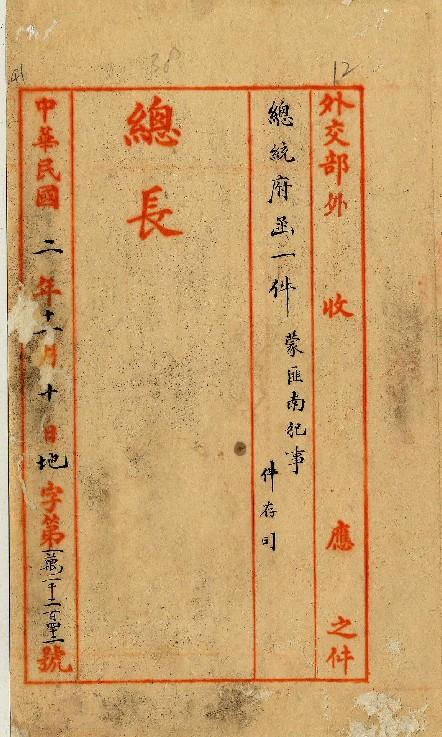 12
38
41
外交部外 收 應 之件
總統府函一件 蒙匪南犯事
件存司
總長
中華民國二年十一月十日地字第一萬二千二百四十二號